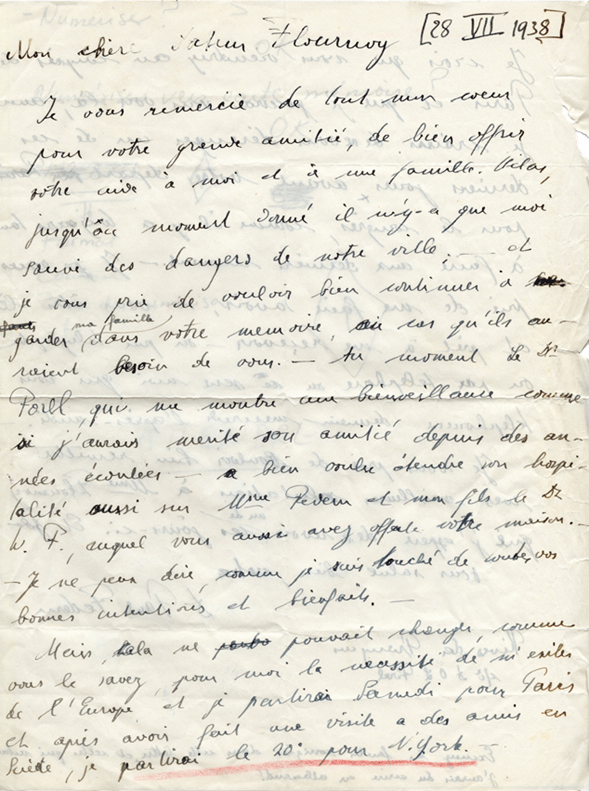 [28 VII 1938]
Mon cher Docteur Flournoy
Je vous remercie de tout mon coeur
pour votre grande amitié de bien offrir
votre aide à moi et à ma famille. Hélas,
jusqu'au moment donné il n'y-a que moi
sauvé des dangers de notre ville, — et
je vous prie de vouloir bien continuer à
garder ma famille dans votre memoire, en cas qu'ils au-
raient besoin de vous. — Au moment le Dr
qui me montre une bienveillance comme
si j'aurais merité son amitié depuis des an-
nées écoulées — a bien voulu étendre son hospi-
talité aussi sur Mme Federn et mon fils le Dr
W. F., auquel vous aussi avez offert votre maison. —
— Je ne peux dire, comme je suis touché de toutes vos
bonnes intentions et bienfaits. —
Mais, cela ne pouvait changer, comme
vous le savez, pour moi la necessité de m'exiler
de l'Europe et je partirai Samedi pour Paris
et après avoir fait une visite a des amis en
Suède, je partirai le 20. pour N. York. —